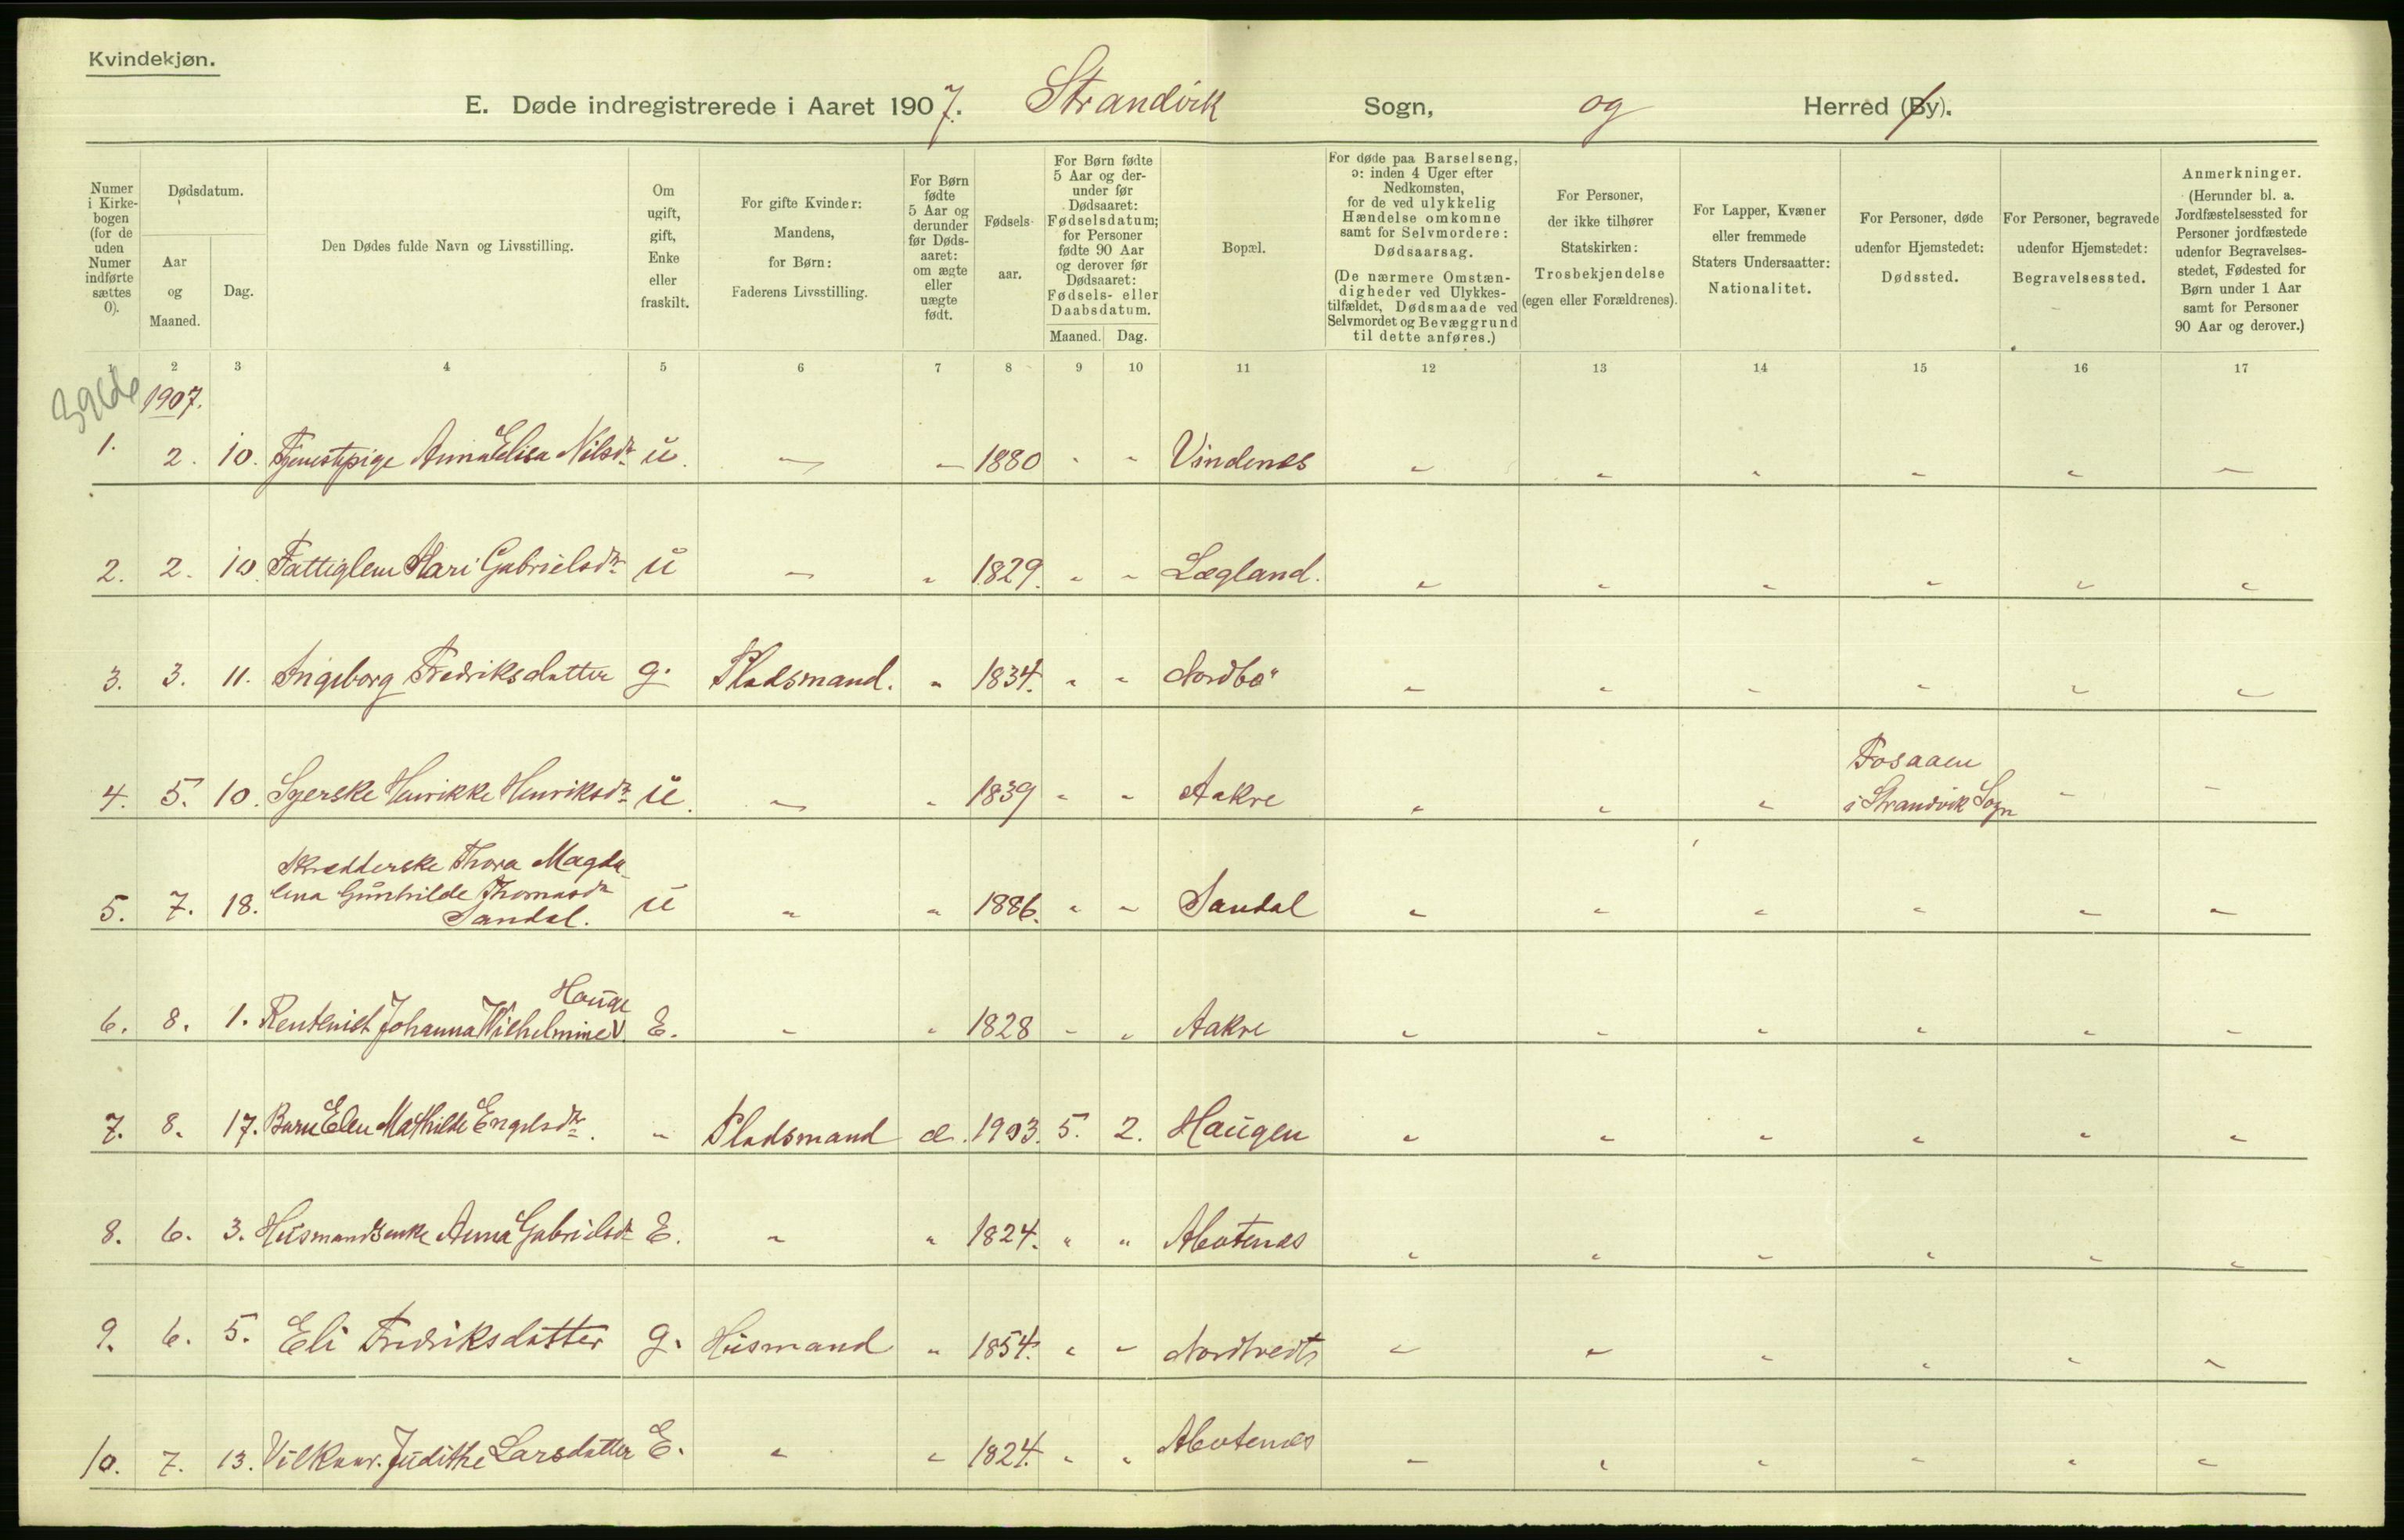 Kvindekjøn.
E. Døde indregistrerede i Aaret 1907. Strandvik Sogn, og Herred (By).
Numer i Kirke-bogen (for de uden Numer indførte sættes 0).
Dødsdatum.
Aar og Maaned.
Dag.
Den Dødes fulde Navn og Livsstilling.
Om ugift, gift, Enke eller fraskilt.
For gifte Kvinder: Mandens, for Børn: Faderens Livsstilling.
For Børn fødte 5 Aar og derunder før Døds-aaret: om ægte eller uægte født.
Fødsels-aar.
For Børn fødte 5 Aar og der-under før Dødsaaret: Fødselsdatum; for Personer fødte 90 Aar og derover før Dødsaaret: Fødsels- eller Daabsdatum.
Maaned. Dag.
Bopæl.
For døde paa Barselseng, ɔ: inden 4 Uger efter Nedkomsten, for de ved ulykkelig Hændelse omkomne samt for Selvmordere: Dødsaarsag.
(De nærmere Omstæn-digheder ved Ulykkes-tilfældet, Dødsmaade ved Selvmordet og Bevæggrund til dette anføres.)
For Personer, der ikke tilhører Statskirken: Trosbekjendelse (egen eller Forældrenes).
For Lapper, Kvæner eller fremmede Staters Undersaatter: Nationalitet.
For Personer, døde udenfor Hjemstedet: Dødssted.
For Personer, begravede udenfor Hjemstedet: Begravelsessted.
Anmerkninger.
(Herunder bl. a. Jordfæstelsessted for Personer jordfæstede udenfor Begravelses-stedet, Fødested for Børn under 1 Aar samt for Personer 90 Aar og derover.)
2 3 4 5 6 7 8 9 10 11 12 13 14 15 16 17
1907.
1. 2. 10. Tjenestpige Anna Elisa Nilsdr u. - - 1880 - - Vindenes - - - - - -
2. 2. 10. Fattiglem Mari Gabrielsdr u - - 1829. - - Lægland. - - - - - -
3. 3. 11. Ingeborg Fredriksdatter g. Pladsmand. - 1834. - - Nordbø - - - - - -
Fosaaen
4. 5. 10. Syerske Henrikke Henriksdr u. - - 1839 - - Aakre - - - i Strandvik Sogn - -
Skredderske Thora Magda
lena Gunhilde Thomasdr
5. 7. 18. Sandal. u - - 1886. - - Sandal - - - - - -
Hauge
6. 8. 1. Rentenist Johanna Wilhelmine V. E. - - 1828 - - Aakre - - - - - -
7. 8. 17. Barn Elen Mathilde Engelsdr. - Pladsmand æ. 1903. 5. 2. Haugen - - - - - -
8. 6. 3. Husmandsenke Anna Gabrielsdr E. - - 1824. - - - - - - - -
9. 6. 5. Eli Fredriksdatter g. Husmand - 1854. - - Nordtvedt - - - - - -
10. 7. 13. Vilkaar. Judithe Larsdatter E. - - 1824. - - - - - - - -